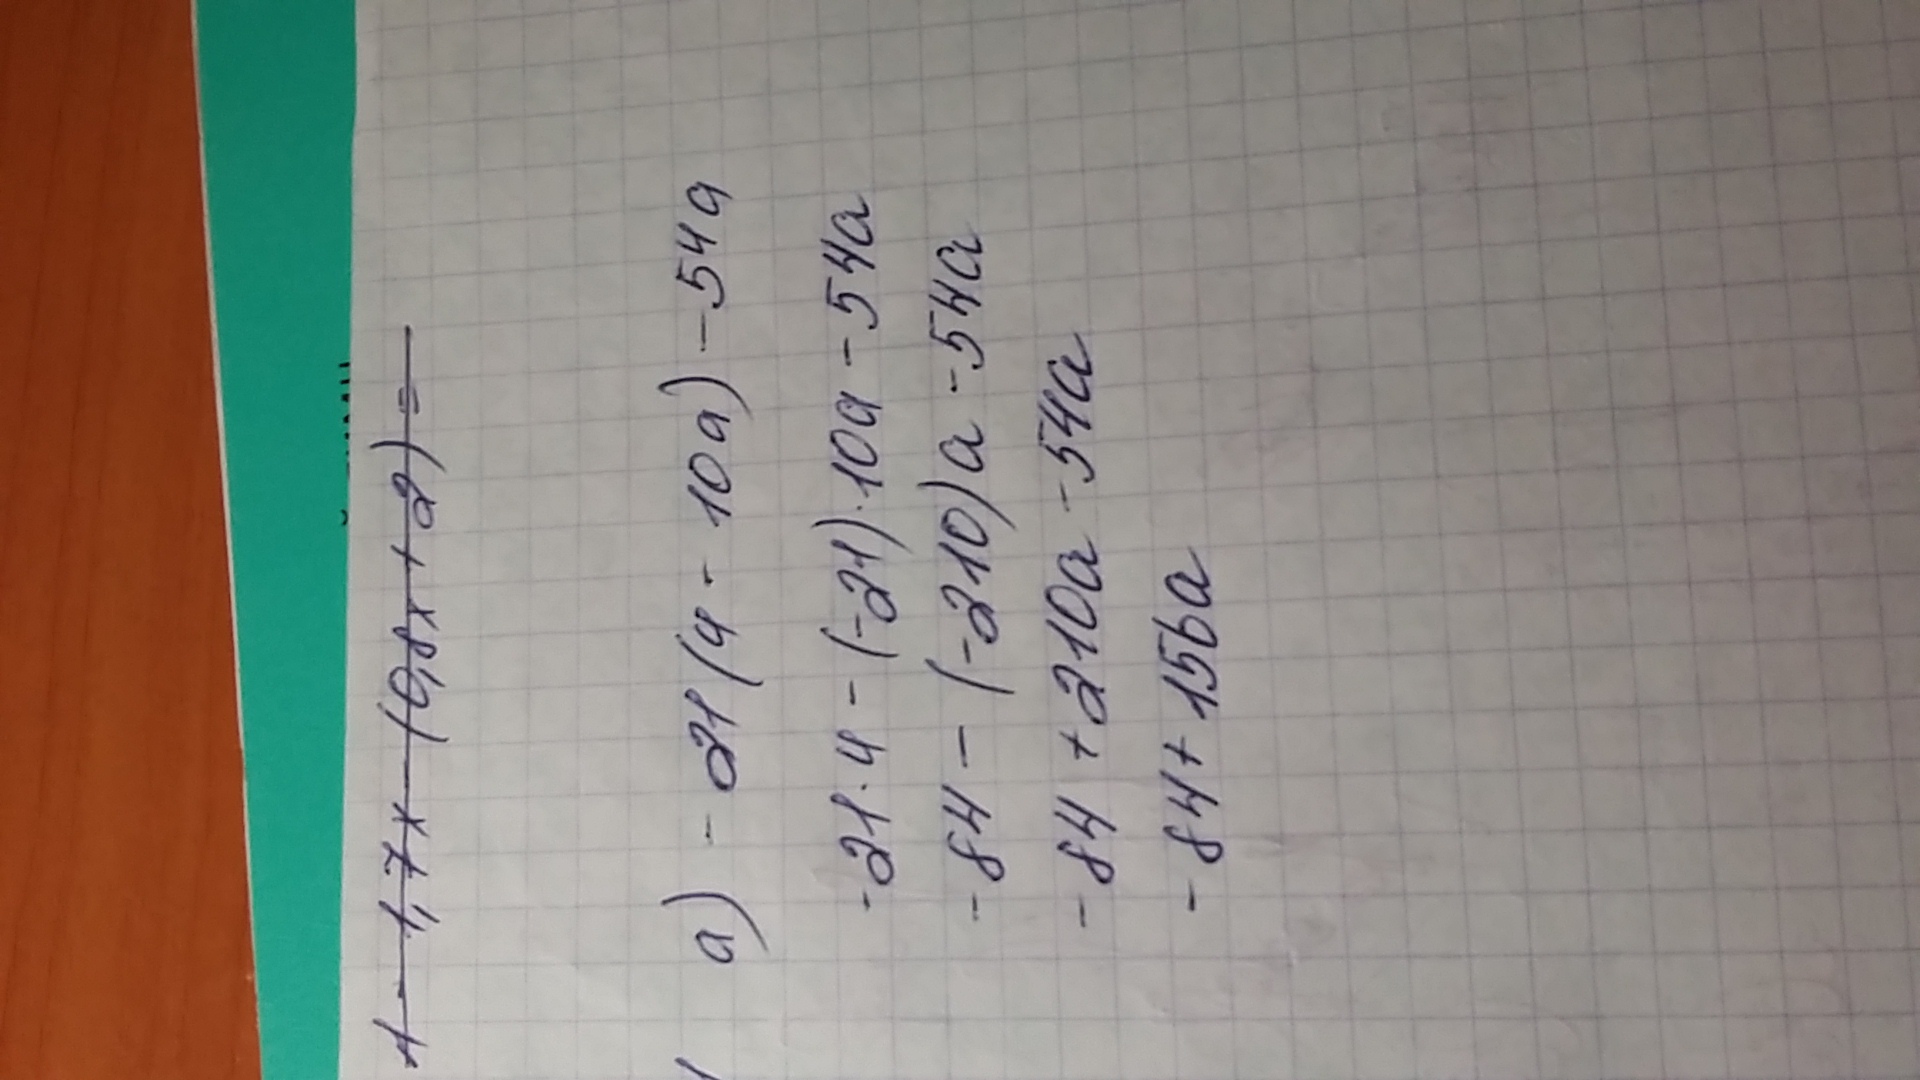 1 - 1,7x - (0,8x + 2) =
а) - 21(4 - 10а) - 54а
-21·4 - (-21)·10а - 54а
- 84 - (-210)а - 54а
- 84 + 210а - 54а
- 84 + 156а